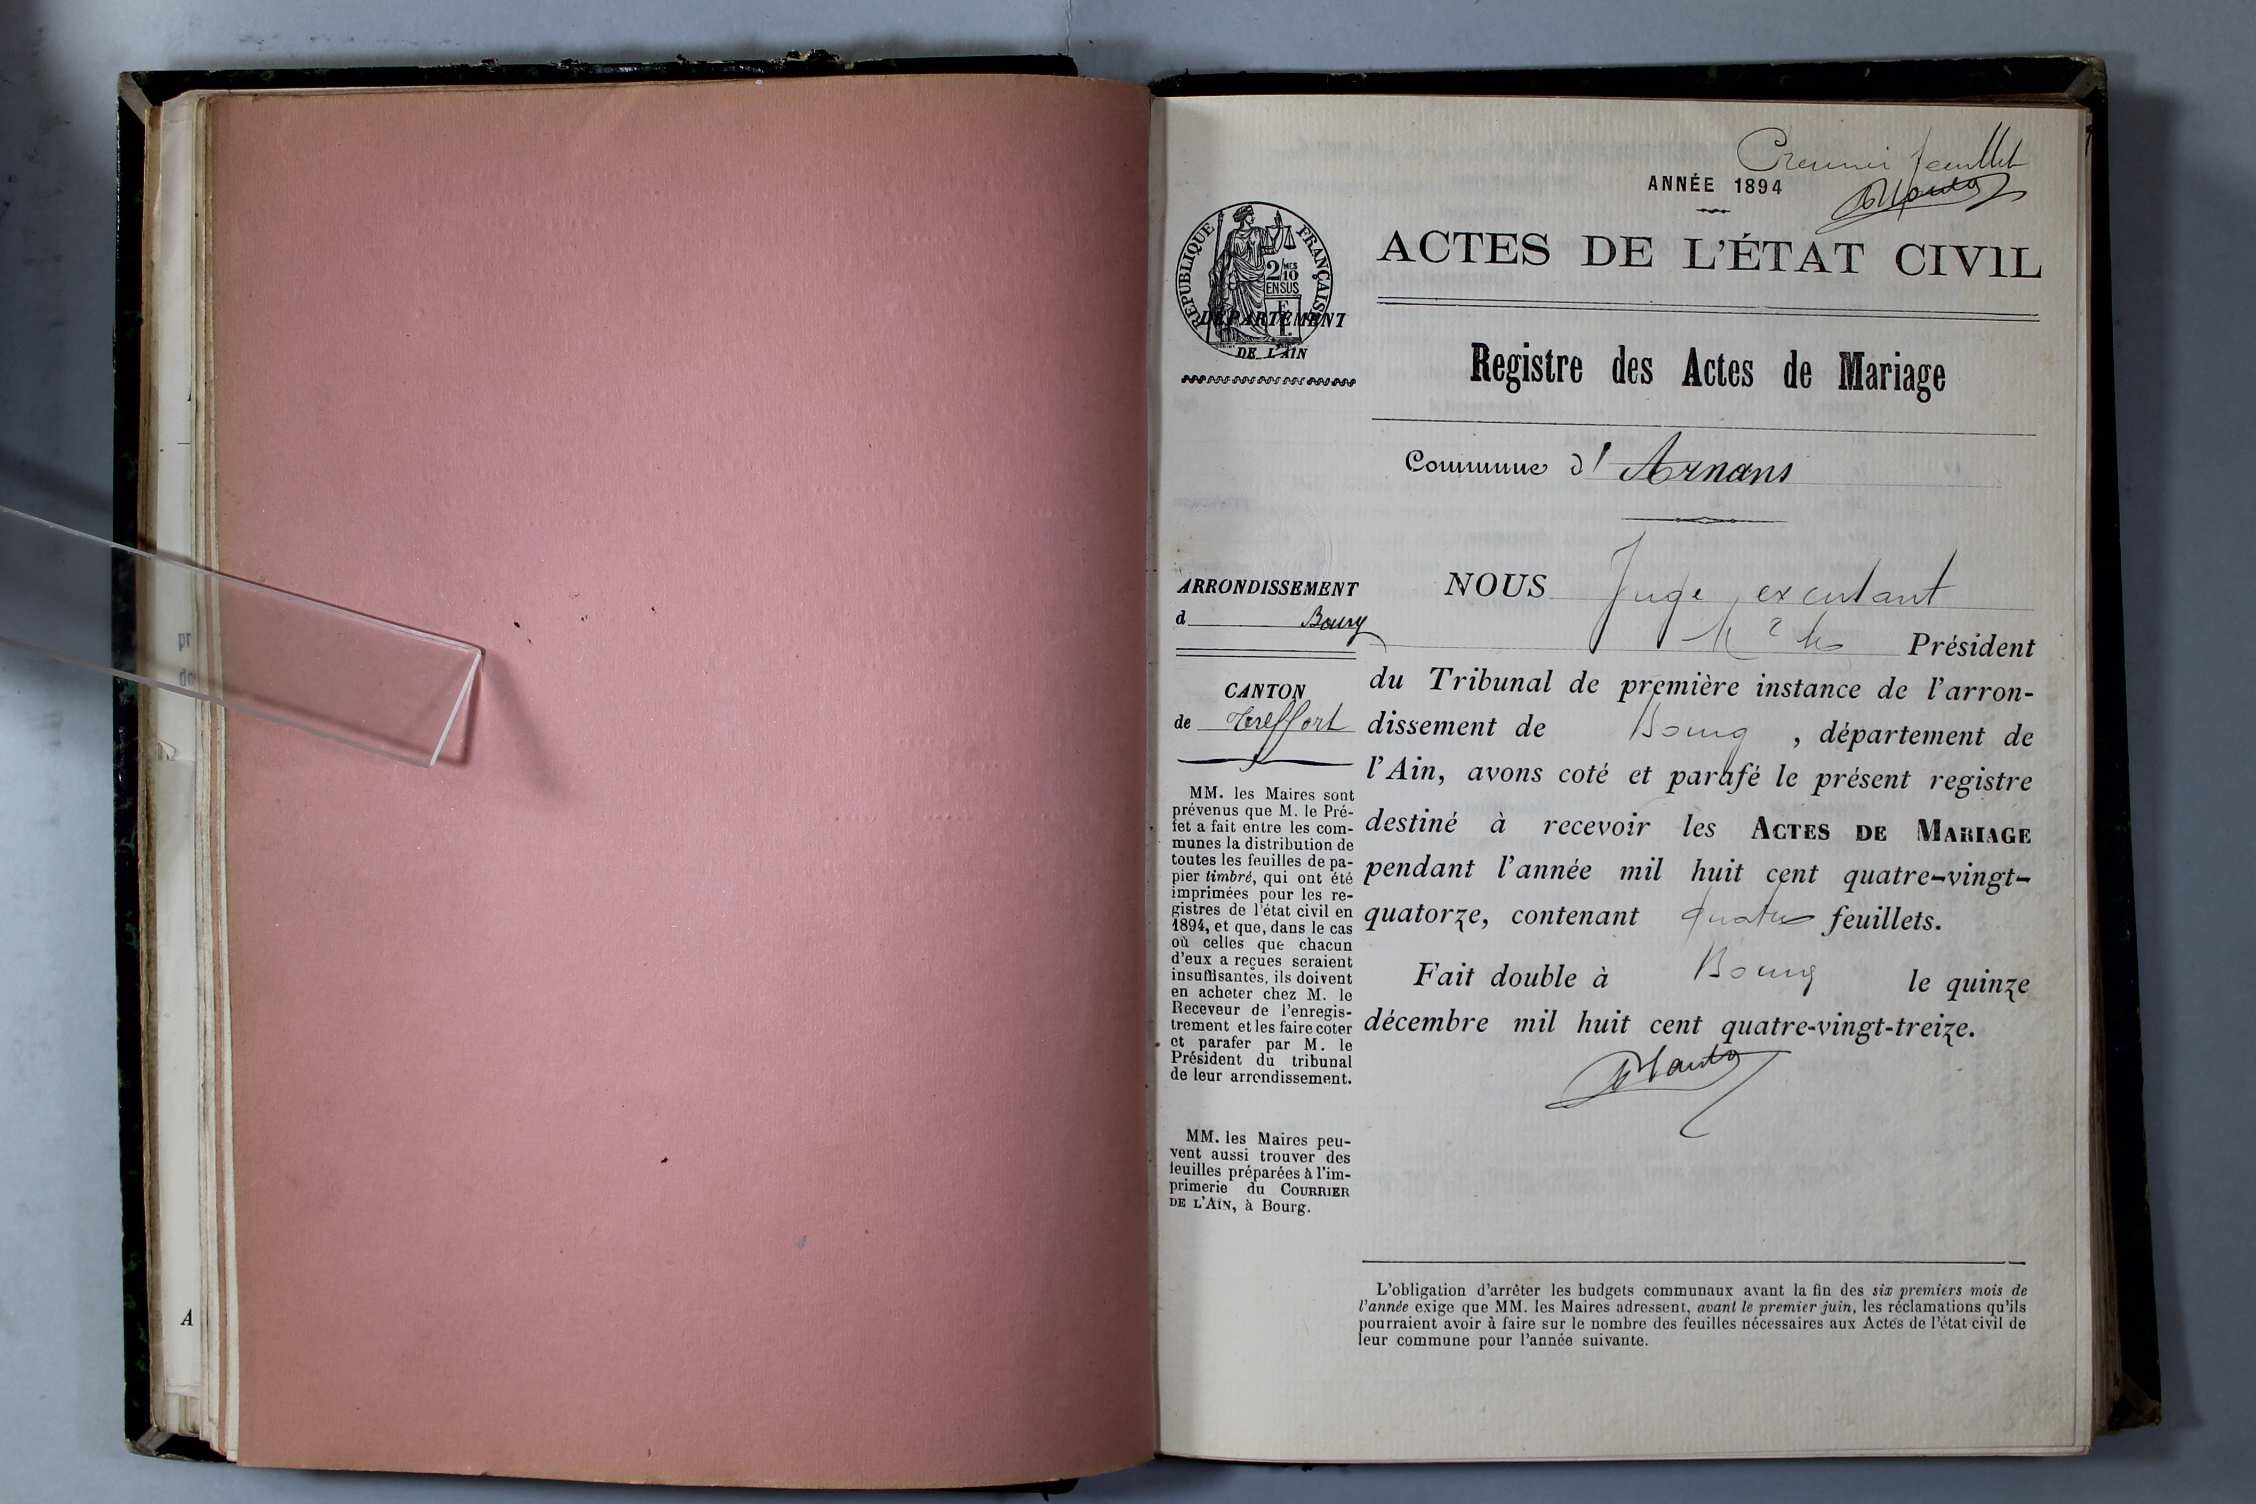 Premier feuillet
ANNÉE 1894
RÉPUBLIQUE FRANÇAISE
2/10MES
EN SUS
DÉPARTEMENT
DE L'AIN
ACTES DE L'ÉTAT CIVIL
Registre des Actes de Mariage
Commune d'Arnans
ARRONDISSEMENT
d Bourg
CANTON
de Treffort
MM. les Maires sont
prévenus que M. le Pré-
fet a fait entre les com-
munes la distribution de
toutes les feuilles de pa-
pier timbré, qui ont été
imprimées pour les re-
gistres de l'état civil en
1894, et que, dans le cas
où celles que chacun
d'eux a reçues seraient
insuffisantes, ils doivent
en acheter chez M. le
Receveur de l'enregis-
trement et les faire coter
et parafer par M. le
Président du tribunal
de leur arrondissement.
MM. les Maires peu-
vent aussi trouver des
feuilles préparées à l'im-
primerie du COURRIER
DE L'AIN, à Bourg.
NOUS Juge
Président
du Tribunal de première instance de l'arron-
dissement de Bourg, département de
l'Ain, avons coté et parafé le présent registre
destiné à recevoir les ACTES DE MARIAGE
pendant l'année mil huit cent quatre-vingt-
quatorze, contenant quatre feuillets.
Fait double à Bourg le quinze
décembre mil huit cent quatre-vingt-treize.
L'obligation d'arrêter les budgets communaux avant la fin des six premiers mois de
l'année exige que MM. les Maires adressent, avant le premier juin, les réclamations qu'ils
pourraient avoir à faire sur le nombre des feuilles nécessaires aux Actes de l'état civil de
leur commune pour l'année suivante.